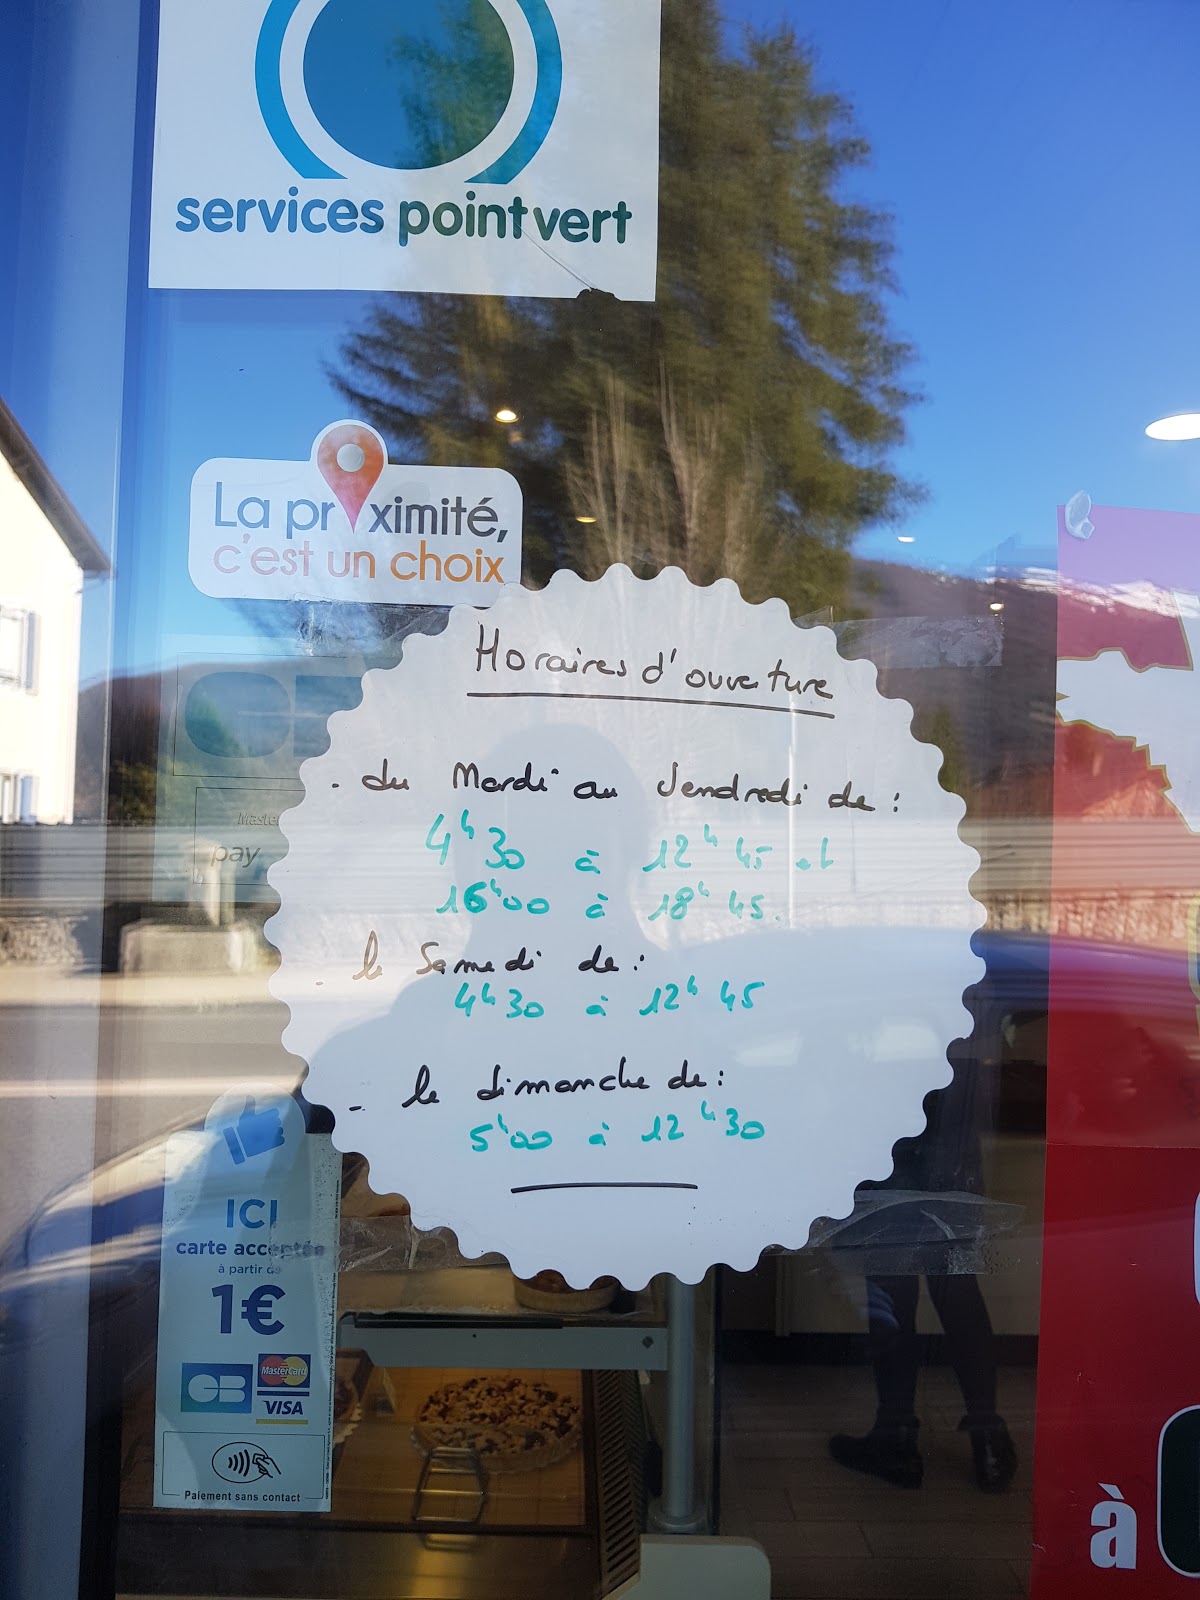 services point vert
La proximité,
c'est un choix
Horaires d'ouverture
. du Mardi au Vendredi de :
4h30 à 12h45 et
16h00 à 18h45.
. le Samedi de :
4h30 à 12h45
- le dimanche de :
5h00 à 12h30
CB
Master
pay
ICI
carte acceptée
à partir de
1€
CB
MasterCard
VISA
Paiement sans contact
à